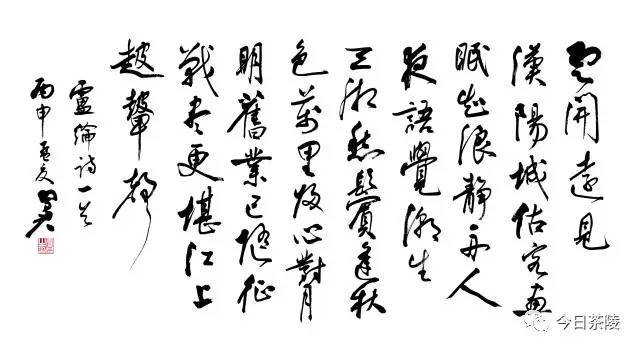 雲開遠見
漢陽城估客晝
眠知浪靜舟人
夜語覺潮生
三湘愁鬢逢秋
色萬里歸心對月
明舊業已隨征
戰盡更堪江上
鼓鼙聲
盧綸詩一首
丙申孟夏
今日茶陵